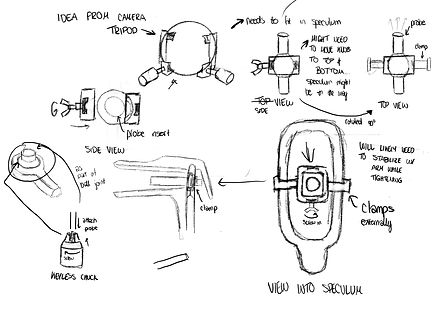 IDEA FROM CAMERA
TRIPOD
needs to fit in speculum
MIGHT NEED
TO MOVE KNOB
TO TOP &
BOTTOM
speculum might
be in the way
TOP VIEW
SIDE
probe
clamp
TOP VIEW
rotated 90°
probe insert
SIDE VIEW
as part of
ball joint
attach
probe
KEYLESS CHUCK
clamp
WILL LIKELY NEED
TO STABILIZE W/
ARM WHILE
TIGHTENING
SCREW IN
Clamps
externally
VIEW INTO SPECULUM